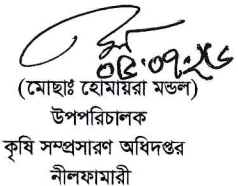 (মোছাঃ হোমায়রা মন্ডল)
উপপরিচালক
কৃষি সম্প্রসারণ অধিদপ্তর
নীলফামারী